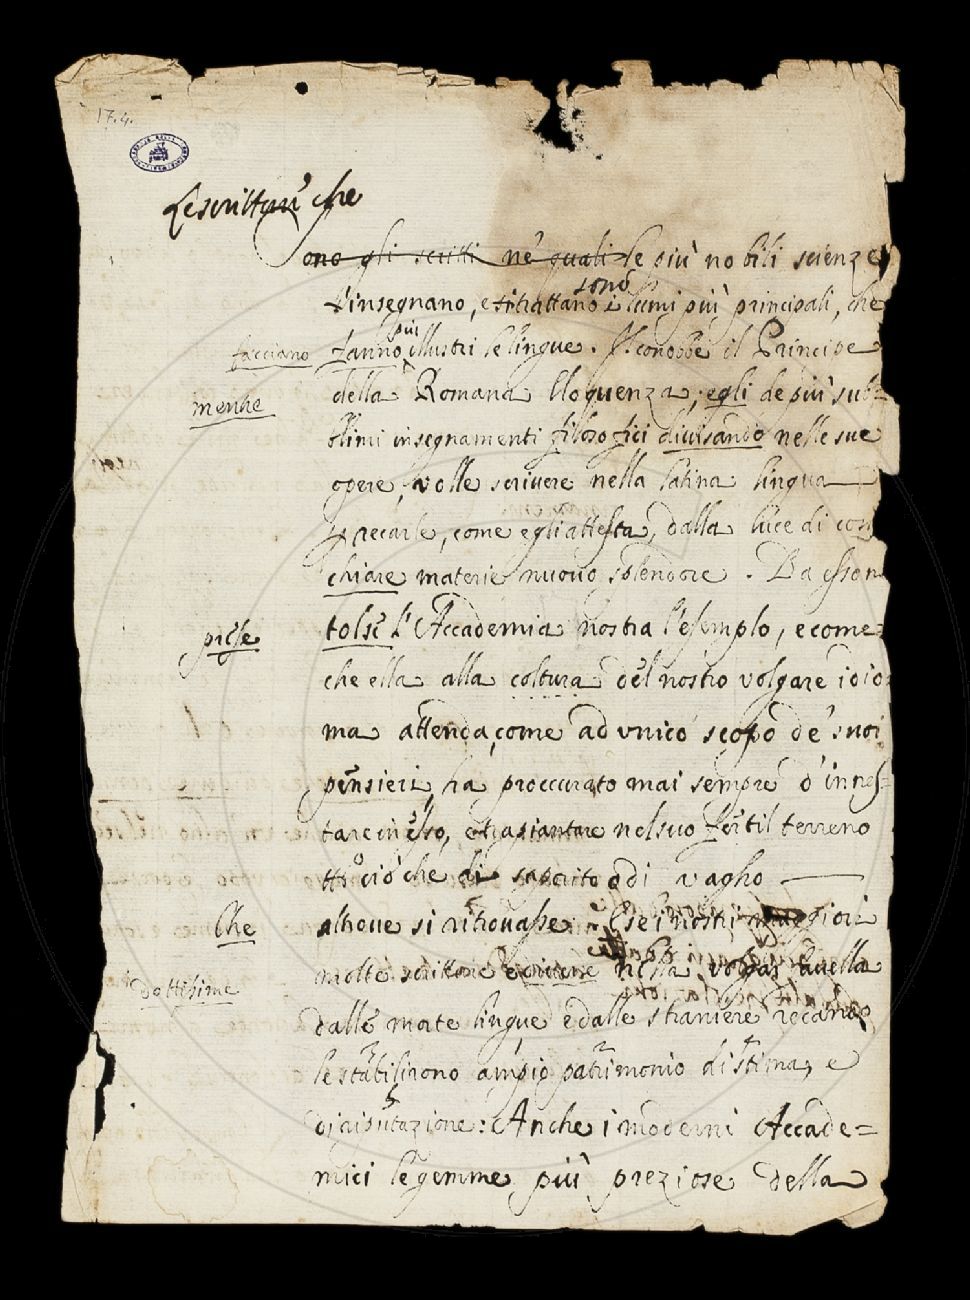 17.4.
Le scritture che
ono gli scritti ne' quali le più nobili scienze
s'insegnano, e si trattano i lumi più principali, che
sono
facciano fanno più illustri le lingue. Il conobbe il Principe
mentre della Romana Eloquenza, egli de più sub=
blimi insegnamenti filosofici divisando nelle sue
opere, volle scrivere nella latina lingua
recarle, come egli attesta, dalla luce di così
chiare materie nuovo splendore. Da esso
prese tolse l'Accademia nostra l'esemplo, e come=
che ella alla coltura del nostro volgare idio=
ma attenda, come ad vnico scopo de' suoi
pensieri, ha proccurato mai sempre d'innes=
tare in esso, e trapiantare nel suo fertil terreno
ciò che di saporito o di vagho
Che altroue si ritrouasse. E se i nostri maggiori
molte scritture nella volgar fauella
dottissime dalle morte lingue e dalle straniere recando
le stabilirono ampio patrimonio di stima, e
di riputazione: Anche i moderni Accade=
mici le gemme più preziose della